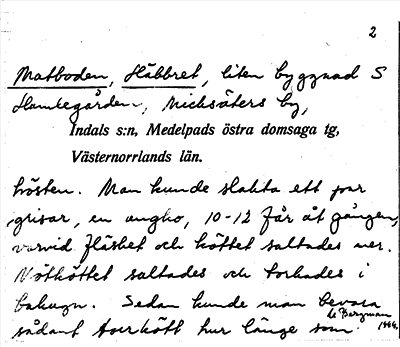 2
Matboden, Häbbret, liten byggnad S
Hamregården, Nichsäters by,
Indals s:n, Medelpads östra domsaga tg,
Västernorrlands län.
hösten. Man kunde slakta ett par
grisar, en ungko, 10-12 får åt gången,
varvid fläsket och köttet saltades ner.
Nötköttet saltades och torkades i
bakugn. Sedan kunde man bevara
sådant torrkött hur länge som
Bergman
1946.